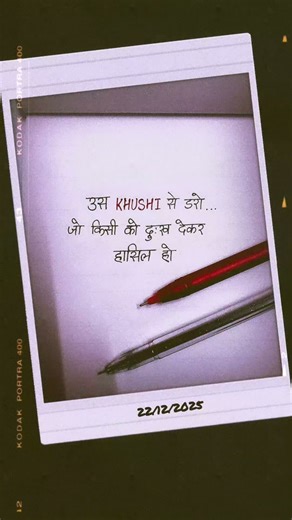 KODAK PORTRA 400
उस KHUSHI से डरो...
जो किसी को दुःख देकर
हासिल हो
22/12/2025
KODAK PORTRA 400
12